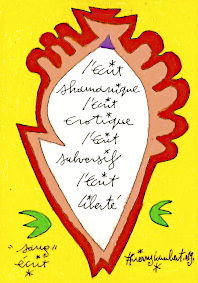 l'écrit
shamanique
l'écrit
érotique
l'écrit
subversif
l'écrit
liberté
"sang"
écrit
thierry lambert